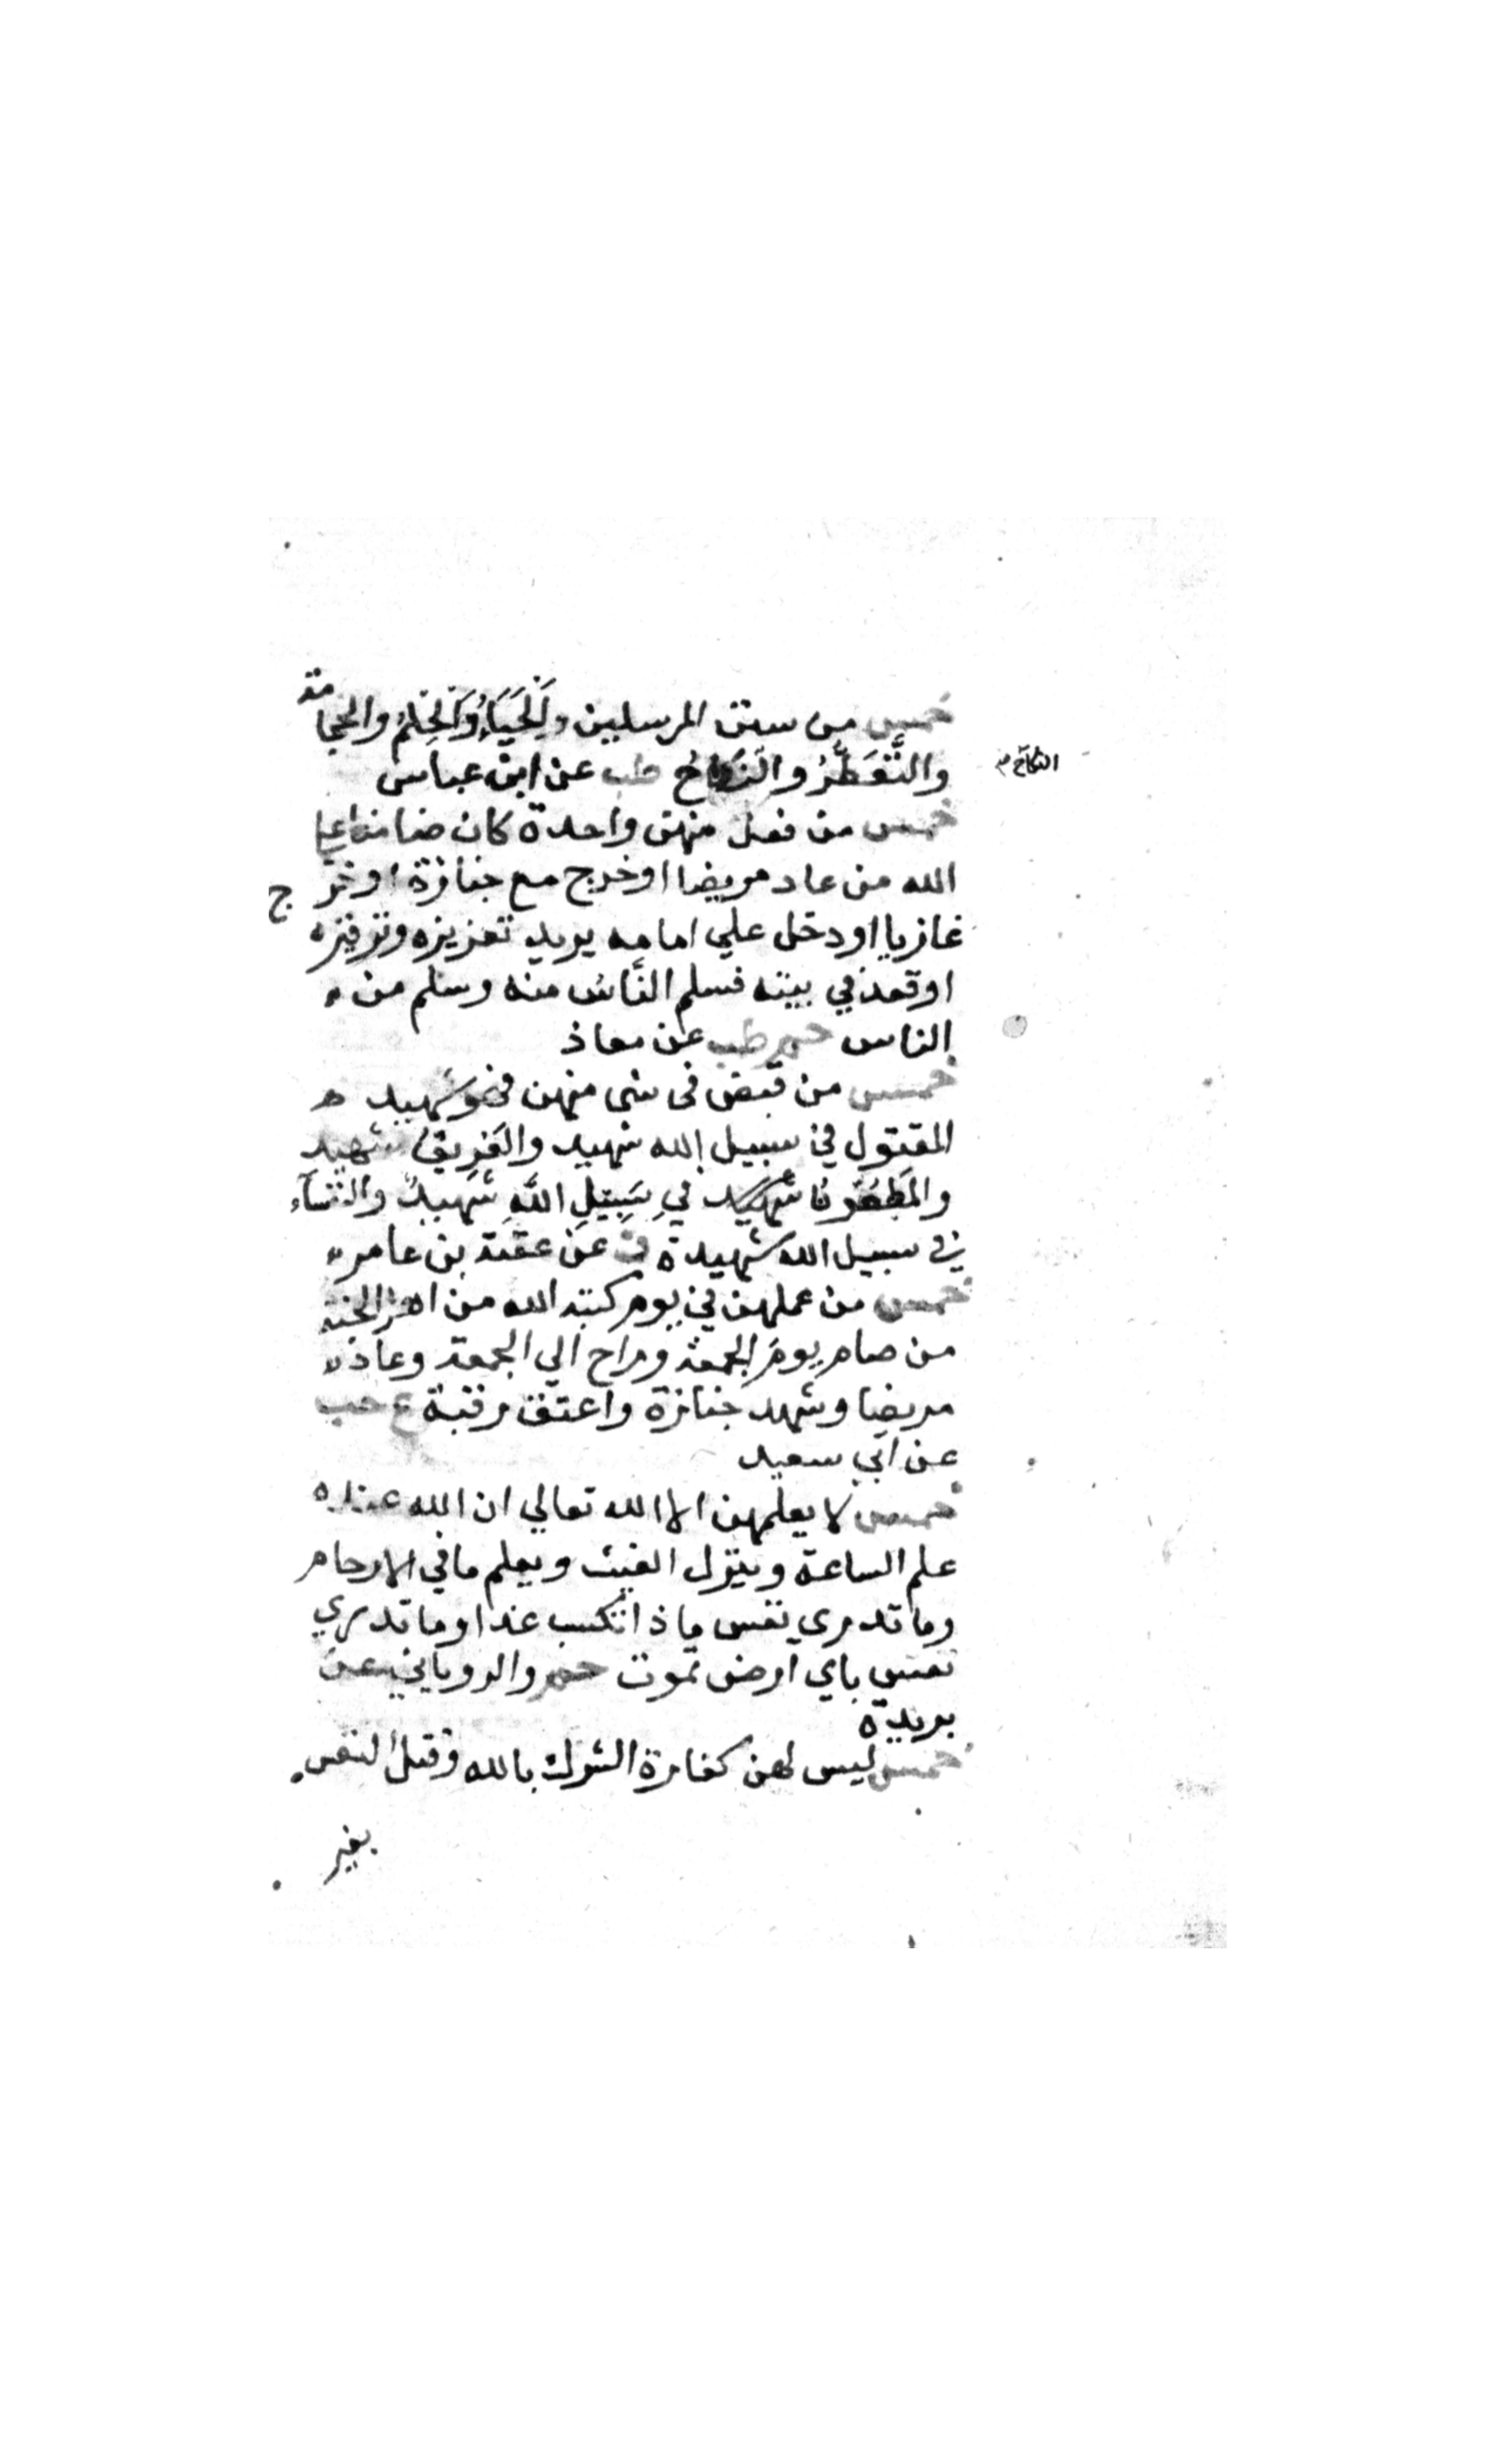 خمس من سنن المرسلين الحَيَاءُ وَالحِلمُ والحجامة
والتَّعَطُّرُ والنكاحُ طب عن ابن عباس
النكاح
خمس من فعل منهن واحدة كان ضامنا علي
الله من عاد مريضا او خرج مع جنازة او خرج
غازيا او دخل علي امامه يريد تعزيزه وتوقيره
او قعد في بيته فسلم النَّاسُ منه وسلم من
الناس حم طب عن معاذ
خمس من قبض في شي منهن فهو شهيد
المقتول في سبيل الله شهيد والغَرِيقُ شهيد
والمَطعُونُ شهيد في سَبِيلِ اللَّهِ شَهِيدٌ والنفسآء
في سبيل الله شهيدة ن عن عقبة بن عامر
خمس من عملهن في يوم كتبه الله من اهل الجنة
من صام يومَ الجمعة وراح الي الجمعة وعاد
مريضا وشهد جنازة واعتق رقبة ع حب
عن ابي سعيد
خمس لا يعلمهن الا الله تعالي ان الله عنده
علم الساعة وينزل الغيث ويعلم ما في الارحام
وما تدري نفس ماذا تكسب غدا وما تدري
نفس باي ارض تموت حم والروياني عن
بريدة
خمس ليس لهن كفارة الشرك بالله وقتل النفس
بغير